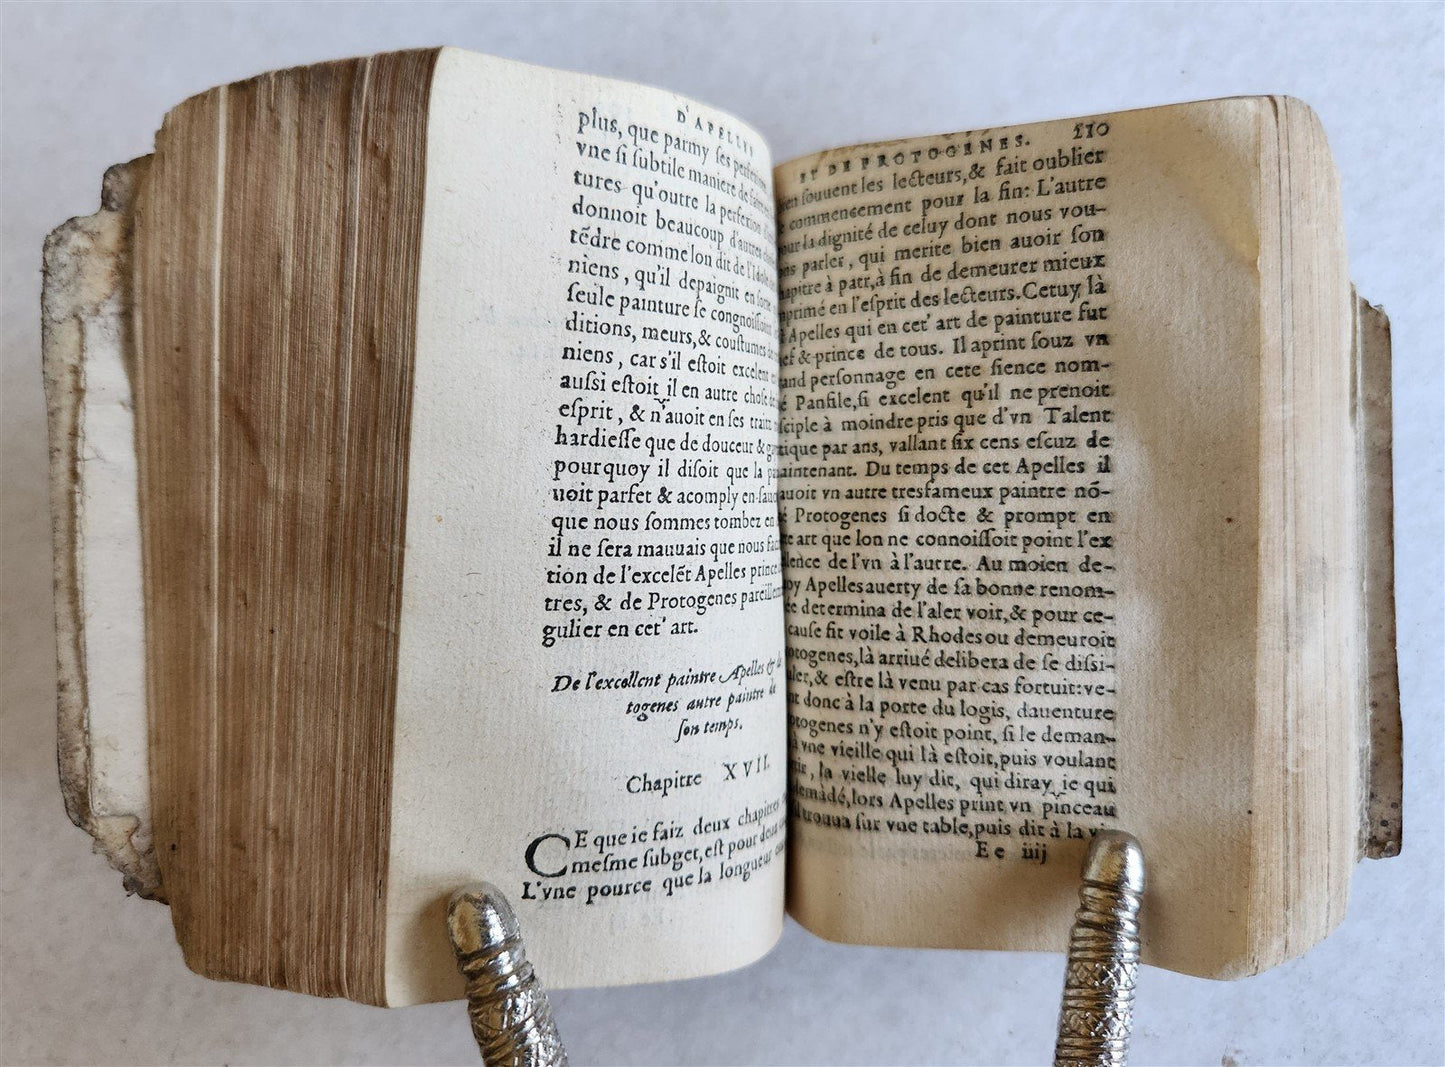 D'APELLES
plus, que parmy ſes perfection
vne ſi ſubtile maniere de
tures qu'outre la perfection
donnoit beaucoup d'autres
tēdre comme lon dit de l'Idole
niens, qu'il depaignit en ſorte
ſeule painture ſe congnoiſſoi
ditions, meurs, & couſtumes
niens, car s'il eſtoit excelent
auſsi eſtoit il en autre choſe
eſprit, & n'auoit en ſes traitz
hardieſſe que de douceur &
pourquoy il diſoit que la
uoit parfet & acomply en
que nous ſommes tombez en
il ne ſera mauuais que nous
tion de l'excelēt Apelles prince
tres, & de Protogenes pareillem
gulier en cet' art.
De l'excellent paintre Apelles &
togenes autre paintre de
ſon temps.
Chapitre XVII.
CE que ie faiz deux chapitres
meſme ſubget, eſt pour deux
L'vne pource que la longueur
ET DE PROTOGENES. 210
ſouuent les lecteurs, & fait oublier
commencement pour la fin: L'autre
our la dignité de celuy dont nous vou-
ns parler, qui merite bien auoir ſon
apitre à part, à fin de demeurer mieux
primé en l'eſprit des lecteurs. Cetuy là
Apelles qui en cet' art de painture fut
ef & prince de tous. Il aprint ſouz vn
and perſonnage en cete ſience nom-
é Panfile, ſi excelent qu'il ne prenoit
ſciple à moindre pris que d'vn Talent
tique par ans, vallant ſix cens eſcuz de
aintenant. Du temps de cet Apelles il
auoit vn autre tresfameux paintre nō-
é Protogenes ſi docte & prompt en
te art que lon ne connoiſſoit point l'ex
lēce de l'vn à l'autre. Au moien de-
oy Apelles auerty de ſa bonne renom-
ée determina de l'aler voir, & pour ce-
cauſe fit voile à Rhodes ou demeuroit
otogenes, là arriué delibera de ſe diſsi-
uler, & eſtre là venu par cas fortuit: ve-
nt donc à la porte du logis, dauenture
otogenes n'y eſtoit point, ſi le deman-
à vne vieille qui là eſtoit, puis voulant
, la vielle luy dit, qui diray ie qui
demādé, lors Apelles print vn pinceau
trouua ſur vne table, puis dit à la
Ee iiij